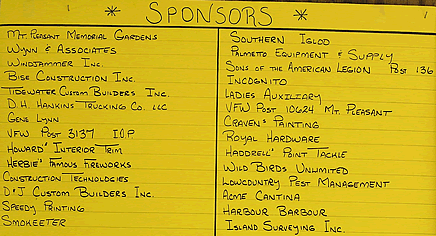 * SPONSORS *
Mt. Pleasant Memorial Gardens
Wynn & Associates
Windjammer Inc.
Bise Construction Inc.
Tidewater Custom Builders Inc.
D.H. Hankins Trucking Co. LLC
Gene Lynn
VFW Post 3137 I.O.P.
Howard' Interior Trim
Herbie' Famous Fireworks
Construction Technologies
D*J Custom Builders Inc.
Speedy Printing
Smokeeter
Southern Igloo
Palmeto Equipment & Supply
Sons of the American Legion Post 136
Incognito
Ladies Auxiliary
VFW Post 10624 Mt. Pleasant
Craven' Painting
Royal Hardware
Haddrell' Point Tackle
Wild Birds Unlimited
Lowcountry Pest Management
Acme Cantina
Harbour Barbour
Island Surveying Inc.